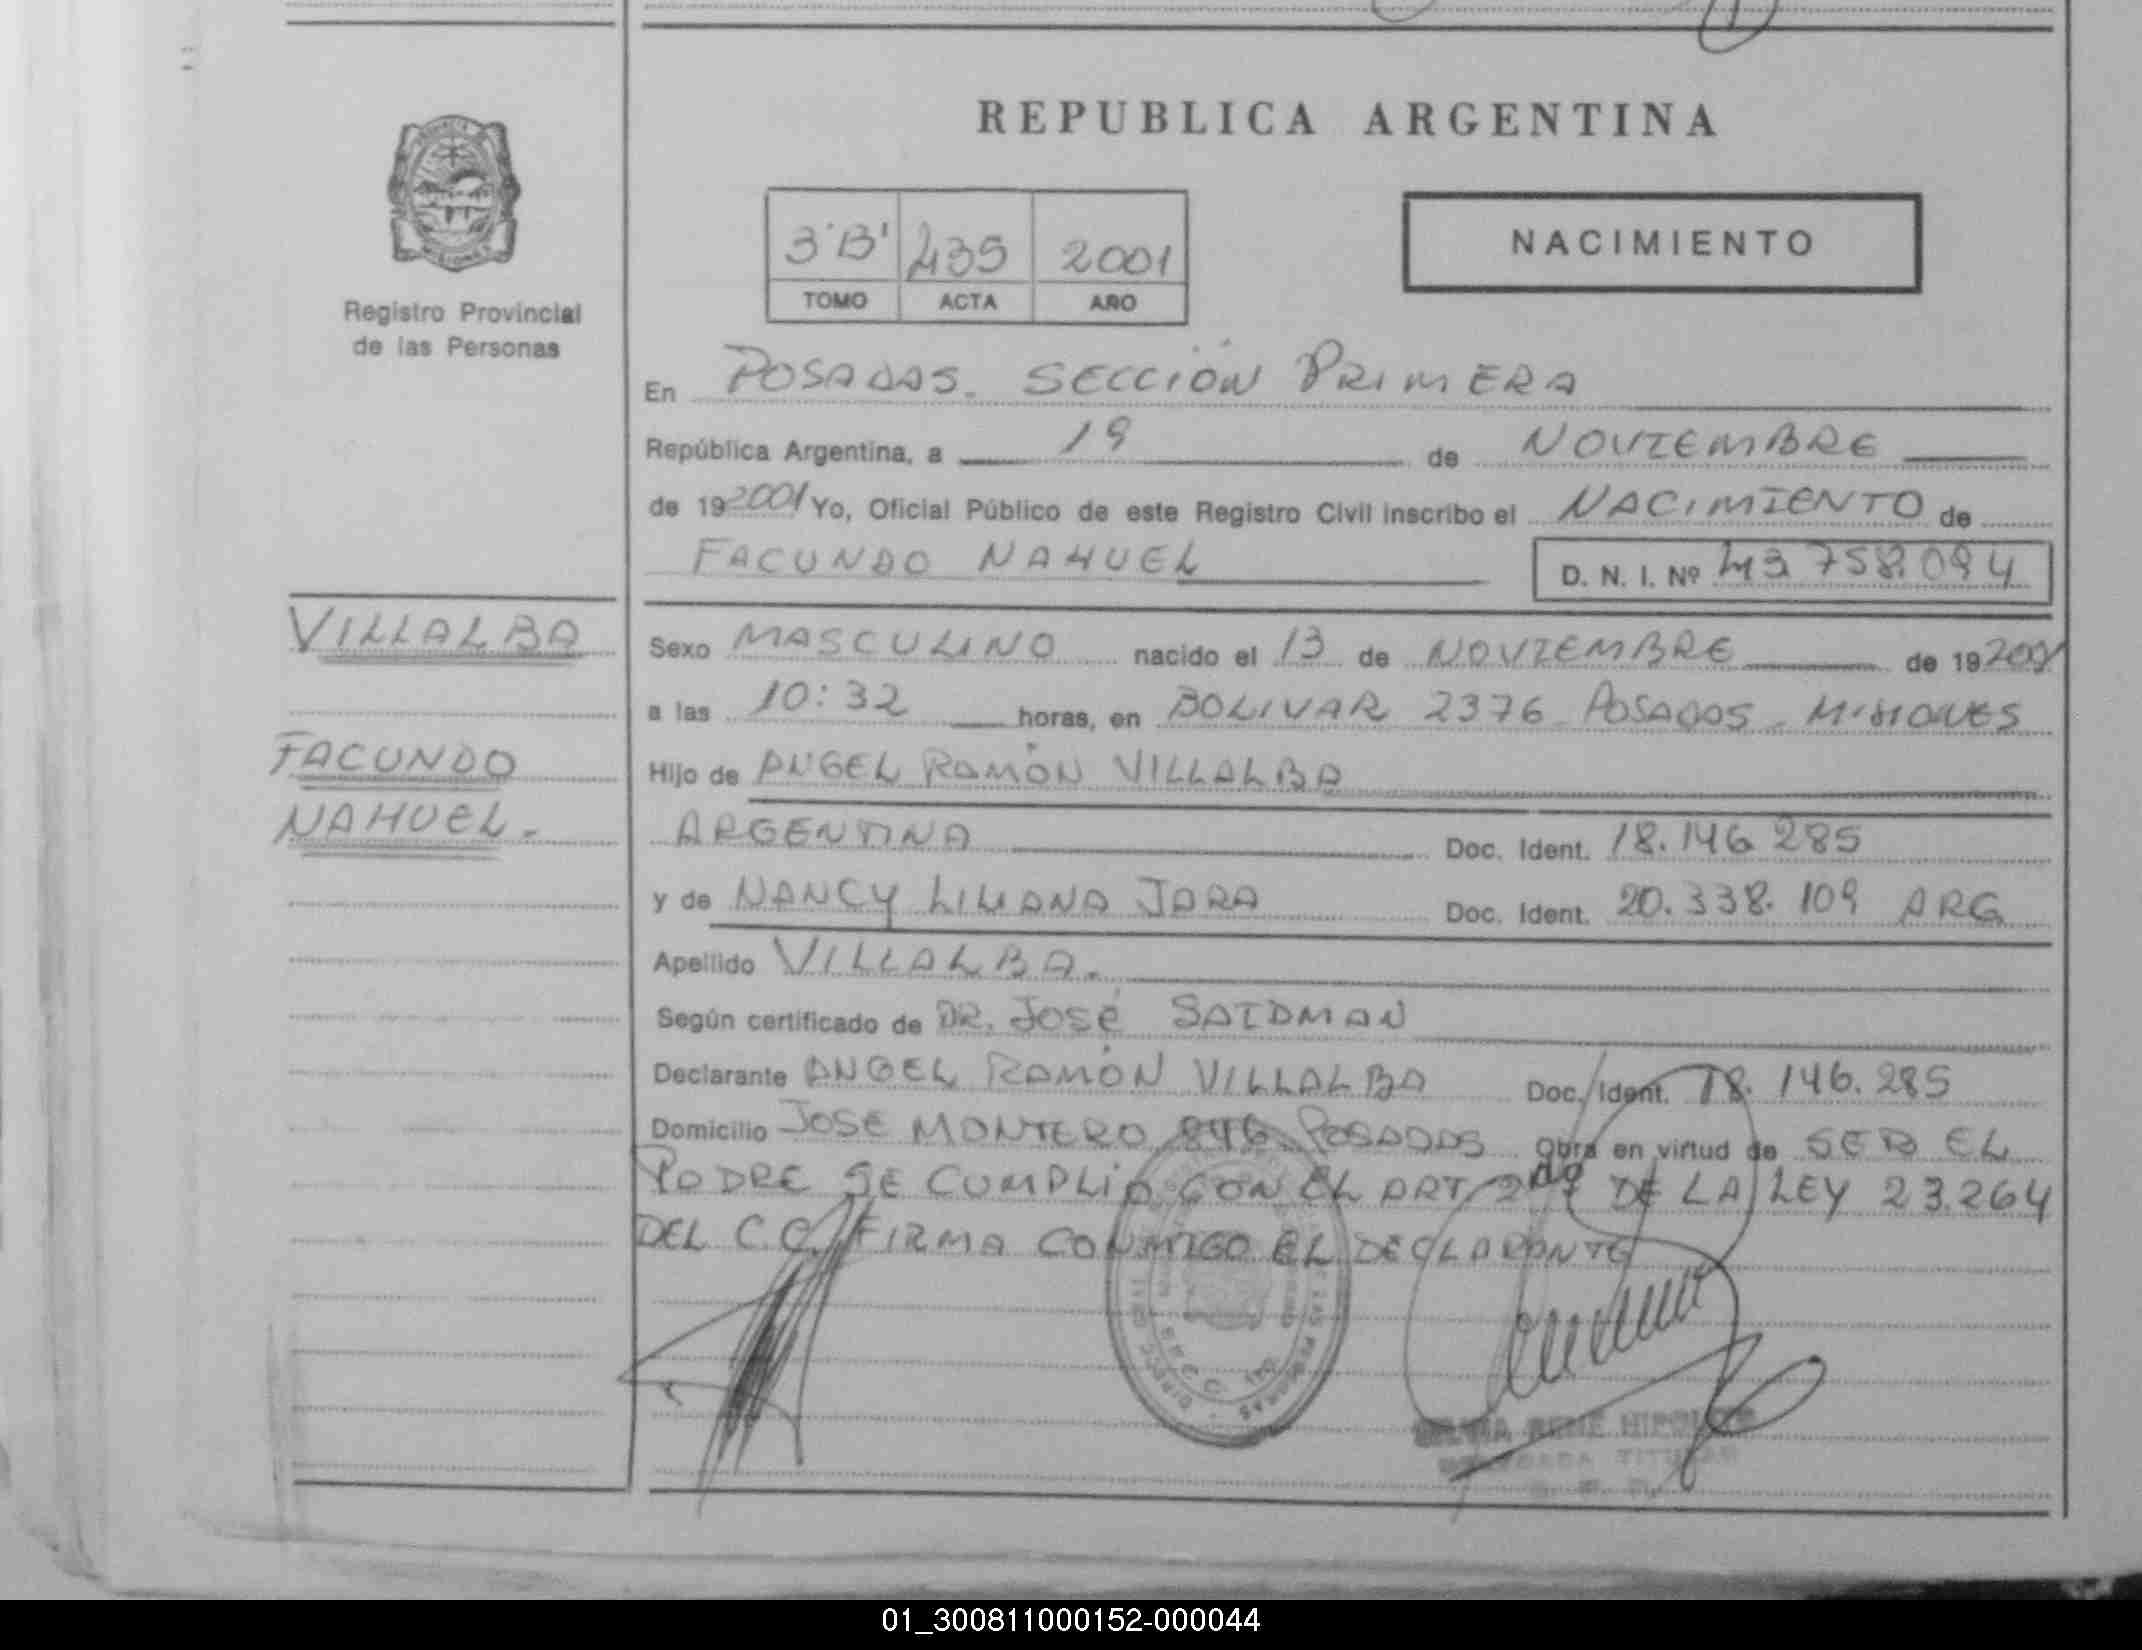 REPUBLICA ARGENTINA
3'B' 435 2001
TOMO ACTA AÑO
NACIMIENTO
Registro Provincial
de las Personas
En POSADAS. SECCIÓN PRIMERA
República Argentina, a 19 de NOVIEMBRE
de 19 2001 Yo, Oficial Público de este Registro Civil inscribo el NACIMIENTO de
FACUNDO NAHUEL D. N. I. Nº 43.758.094
VILLALBA
FACUNDO
NAHUEL.
Sexo MASCULINO nacido el 13 de NOVIEMBRE de 19 2001
a las 10:32 horas, en BOLIVAR 2376 POSADAS - MISIONES
Hijo de ANGEL RAMÓN VILLALBA
ARGENTINA Doc. Ident. 18.146.285
y de NANCY LILIANA JARA Doc. Ident. 20.338.109 ARG
Apellido VILLALBA.
Según certificado de DR. JOSÉ SAIDMAN
Declarante ANGEL RAMÓN VILLALBA Doc. Ident. 18.146.285
Domicilio JOSE MONTERO 846 POSADAS Obra en virtud de SER EL
PADRE SE CUMPLIÓ CON EL ART 2do DE LA LEY 23.264
DEL C.C. FIRMA CONMIGO EL DECLARANTE
RENE HIPOLITO
TITULAR
01_300811000152-000044